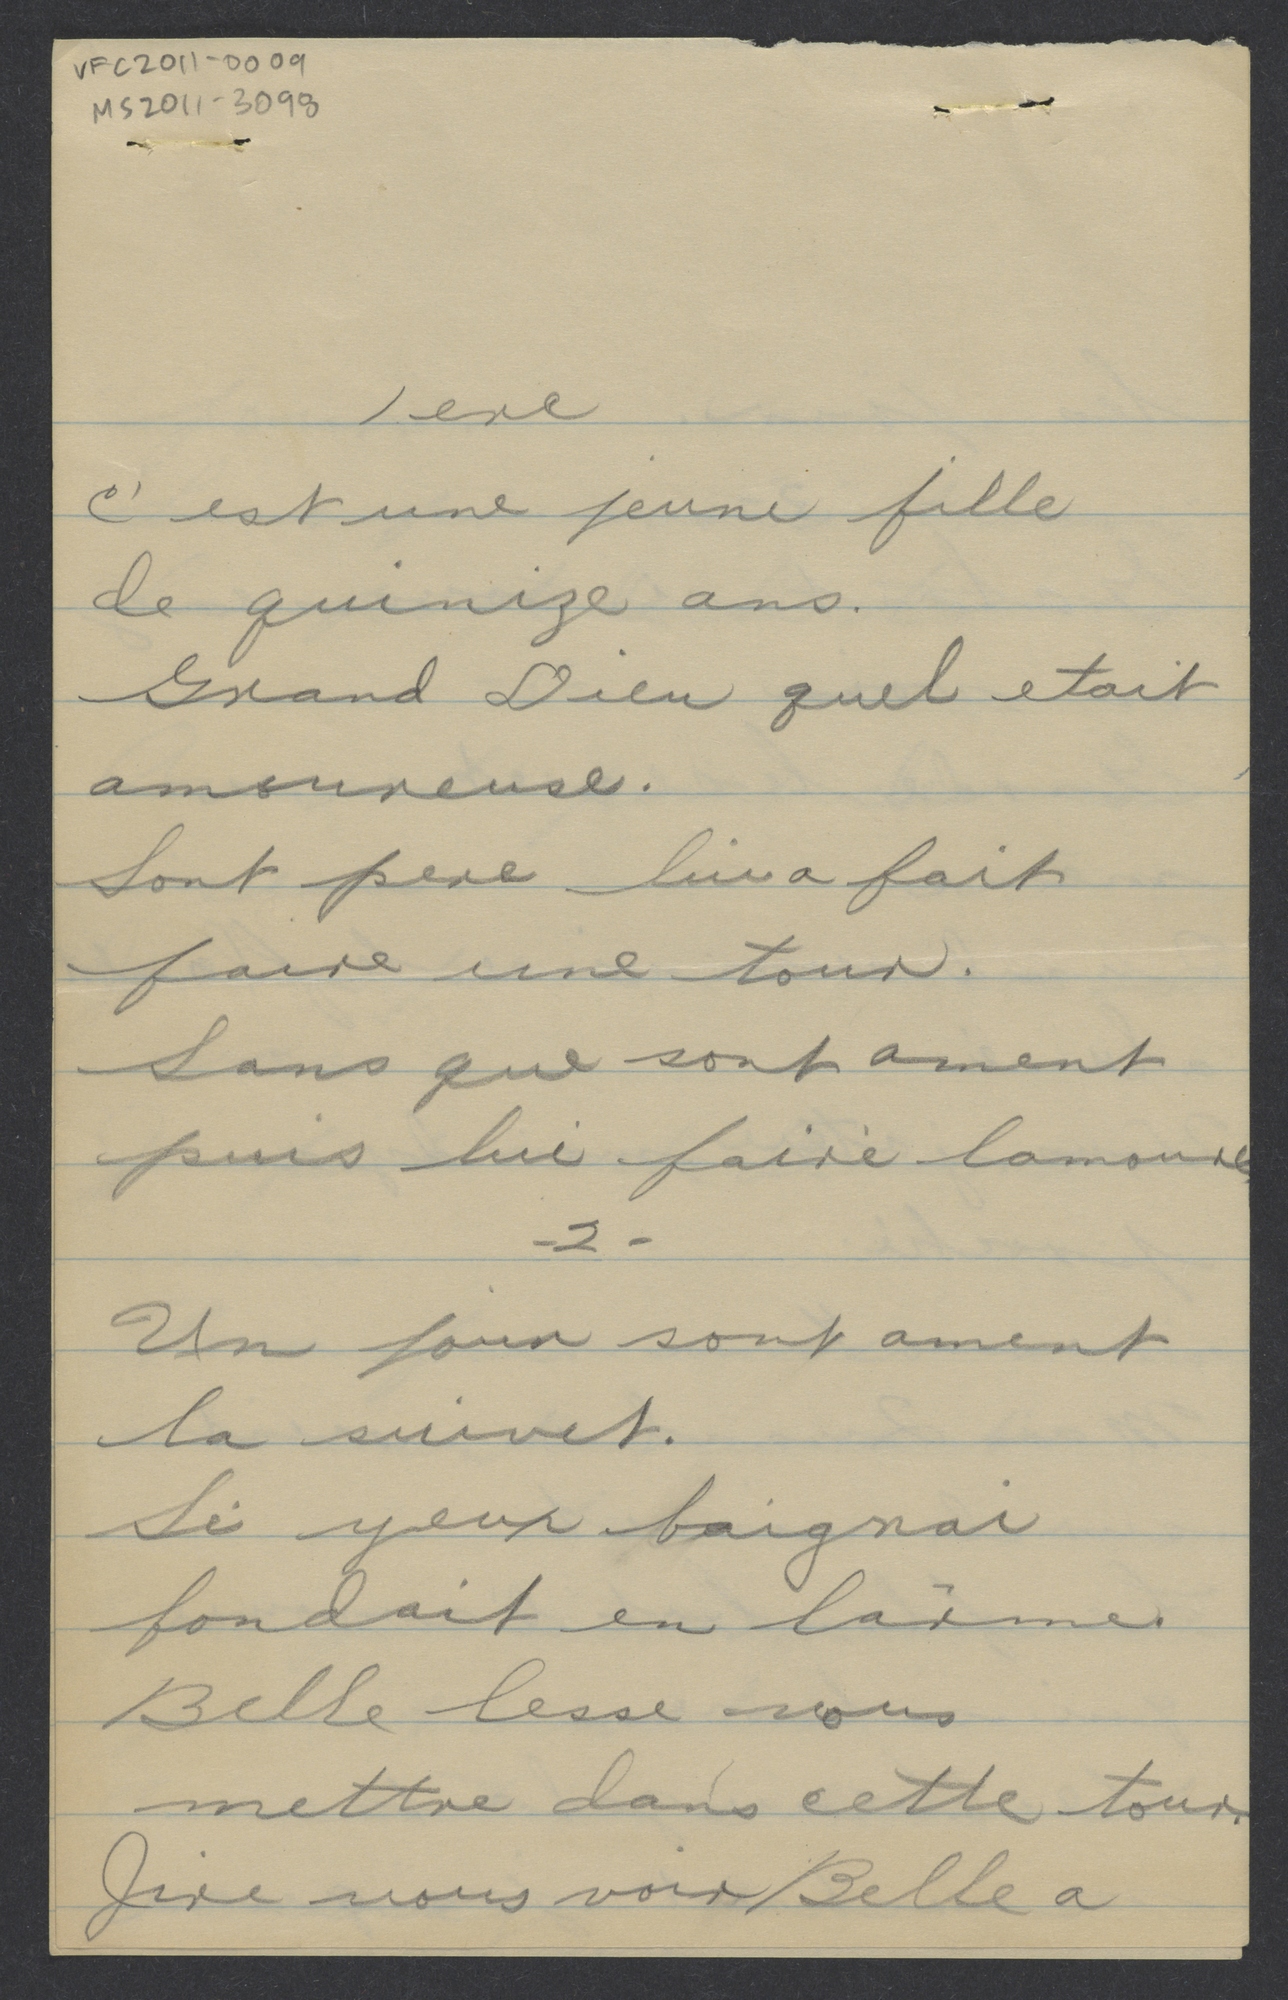 VFC2011-0009
MS2011-3098
1ere
C'est une jeune fille
de quinize ans.
Grand Dieu quel etait
amoureuse.
Sont pere lui a fait
faire une tour.
Sans que sont ament
puis lui faire lamoure
-2-
Un jour sont ament
la suivet.
Se yeux baignai
fondait en larme.
Belle lesse vous
mettre dans cette tour.
Jire vous voir Belle a